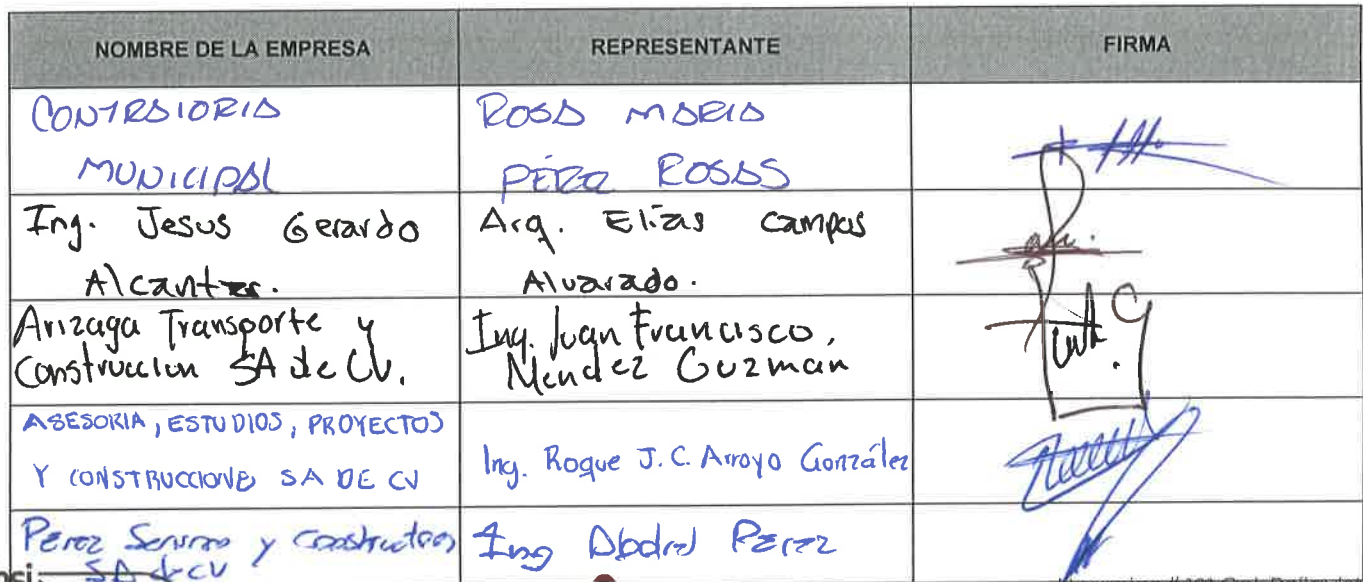 NOMBRE DE LA EMPRESA REPRESENTANTE FIRMA
CONTRALORIA
MUNICIPAL
ROSA MARIA
PÉREZ ROSAS
Ing. Jesus Gerardo
Alcantar.
Arq. Elias Campos
Alvarado.
Arizaga Transporte y
Construccion SA de CV.
Ing. Juan Francisco,
Mendez Guzman
ASESORIA, ESTUDIOS, PROYECTOS
Y CONSTRUCCIONES SA DE CV
Ing. Roque J. C. Arroyo González
Perez y
SA de CV
Ing Perez